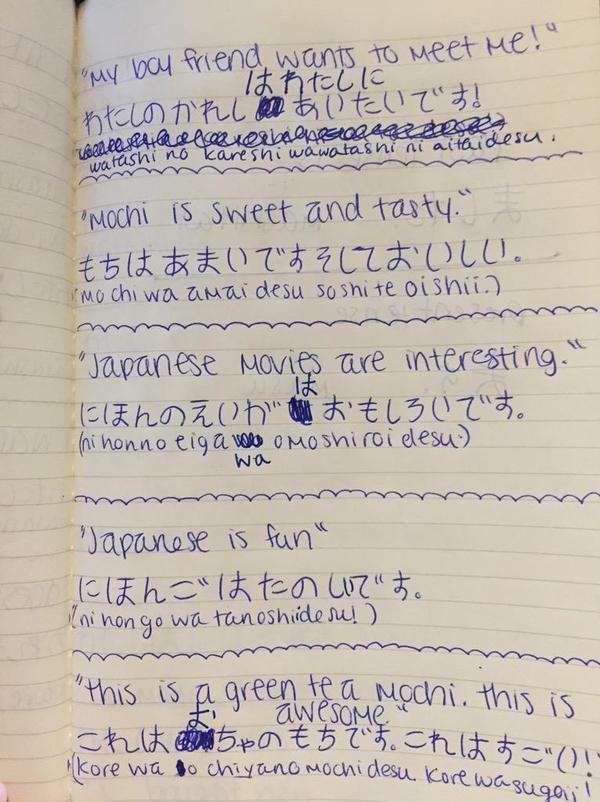 "My boy friend wants to meet me!"
はわたしに
わたしのかれし あいたいです!
watashi no kareshi wawatashi ni aitaidesu.
"Mochi is sweet and tasty."
もちは あまいですそしておいしい。
(mo chi wa amai desu soshite oishii.)
"Japanese movies are interesting."
は
にほんのえいが おもしろいです。
(ni honno eiga omoshiroi desu.)
wa
"Japanese is fun"
にほんご はたのしいです。
(ni hon go wa tanoshiidesu!)
"this is a green tea mochi. this is
お awesome"
これは ちゃのもちです。これはすごい!
(kore wa o chiyano mochi desu. kore wa sugoii!